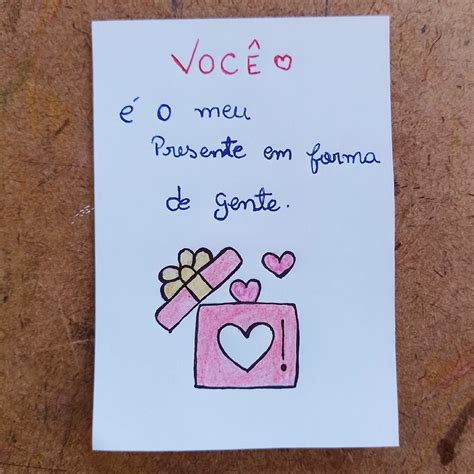 VOCÊ
é o meu
Presente em forma
de gente.